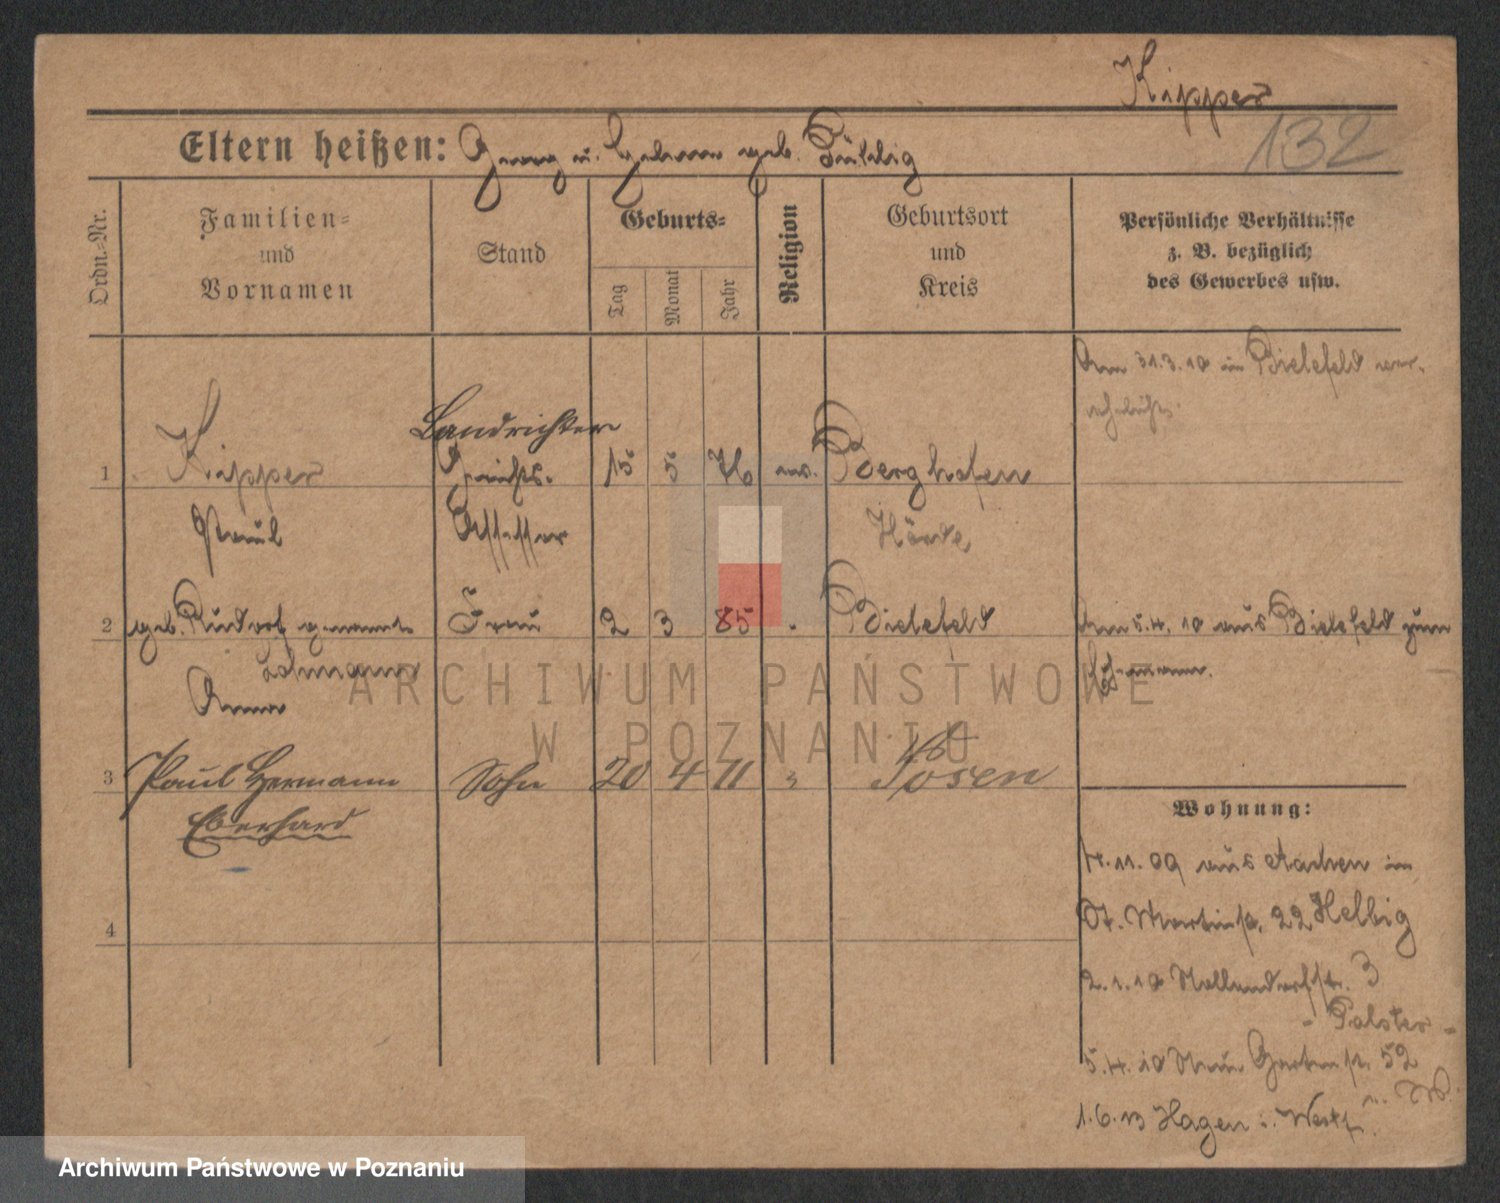 Kipper
132
Eltern heißen: Georg u. Johanne geb. Fülbig
Ordn.-Nr.
Familien-
und
Vornamen
Stand
Geburts-
Tag
Monat
Jahr
Religion
Geburtsort
und
Kreis
Persönliche Verhältnisse
z. B. bezüglich
des Gewerbes usw.
Am 31.3.10 in Bielefeld ver-
ehelicht.
Landrichter
1 Kipper Gerichts- 15 5 76 ev. Berghofen
Paul Assessor Hörde
2 geb. Rudorf genannt Frau 2 3 85 Bielefeld Am 5.4.10 aus Bielefeld zum
Lohmann
Anna
Ehemann.
3 Paul Hermann Sohn 20 4 11 " Posen
Eberhard
Wohnung:
4.11.09 aus Aachen in
St. Martinstr. 22 Helbig
4
2.1.10 Hollendorfstr. 3
- Polster -
5.4.10 Neue Gartenstr. 52
1.6.13 Hagen i. Westf.
ARCHIWUM PAŃSTWOWE
W POZNANIU
Archiwum Państwowe w Poznaniu